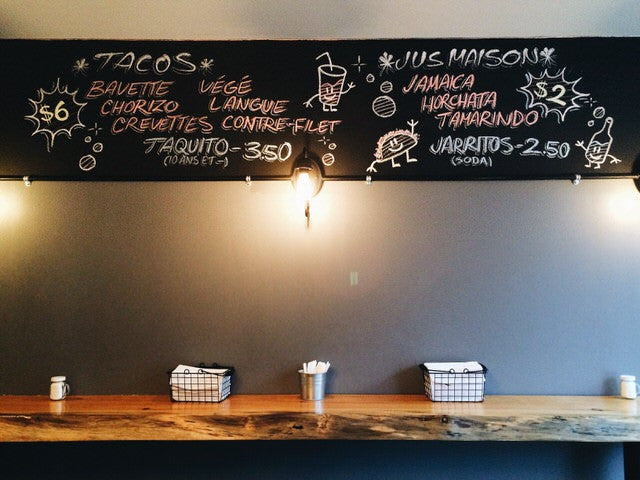 *TACOS*
$6
BAVETTE VÉGÉ
CHORIZO LANGUE
CREVETTES CONTRE-FILET
TAQUITO-3.50
(10 ANS ET-)
*JUS MAISON*
JAMAICA
HORCHATA
TAMARINDO
$2
JARRITOS-2.50
(SODA)